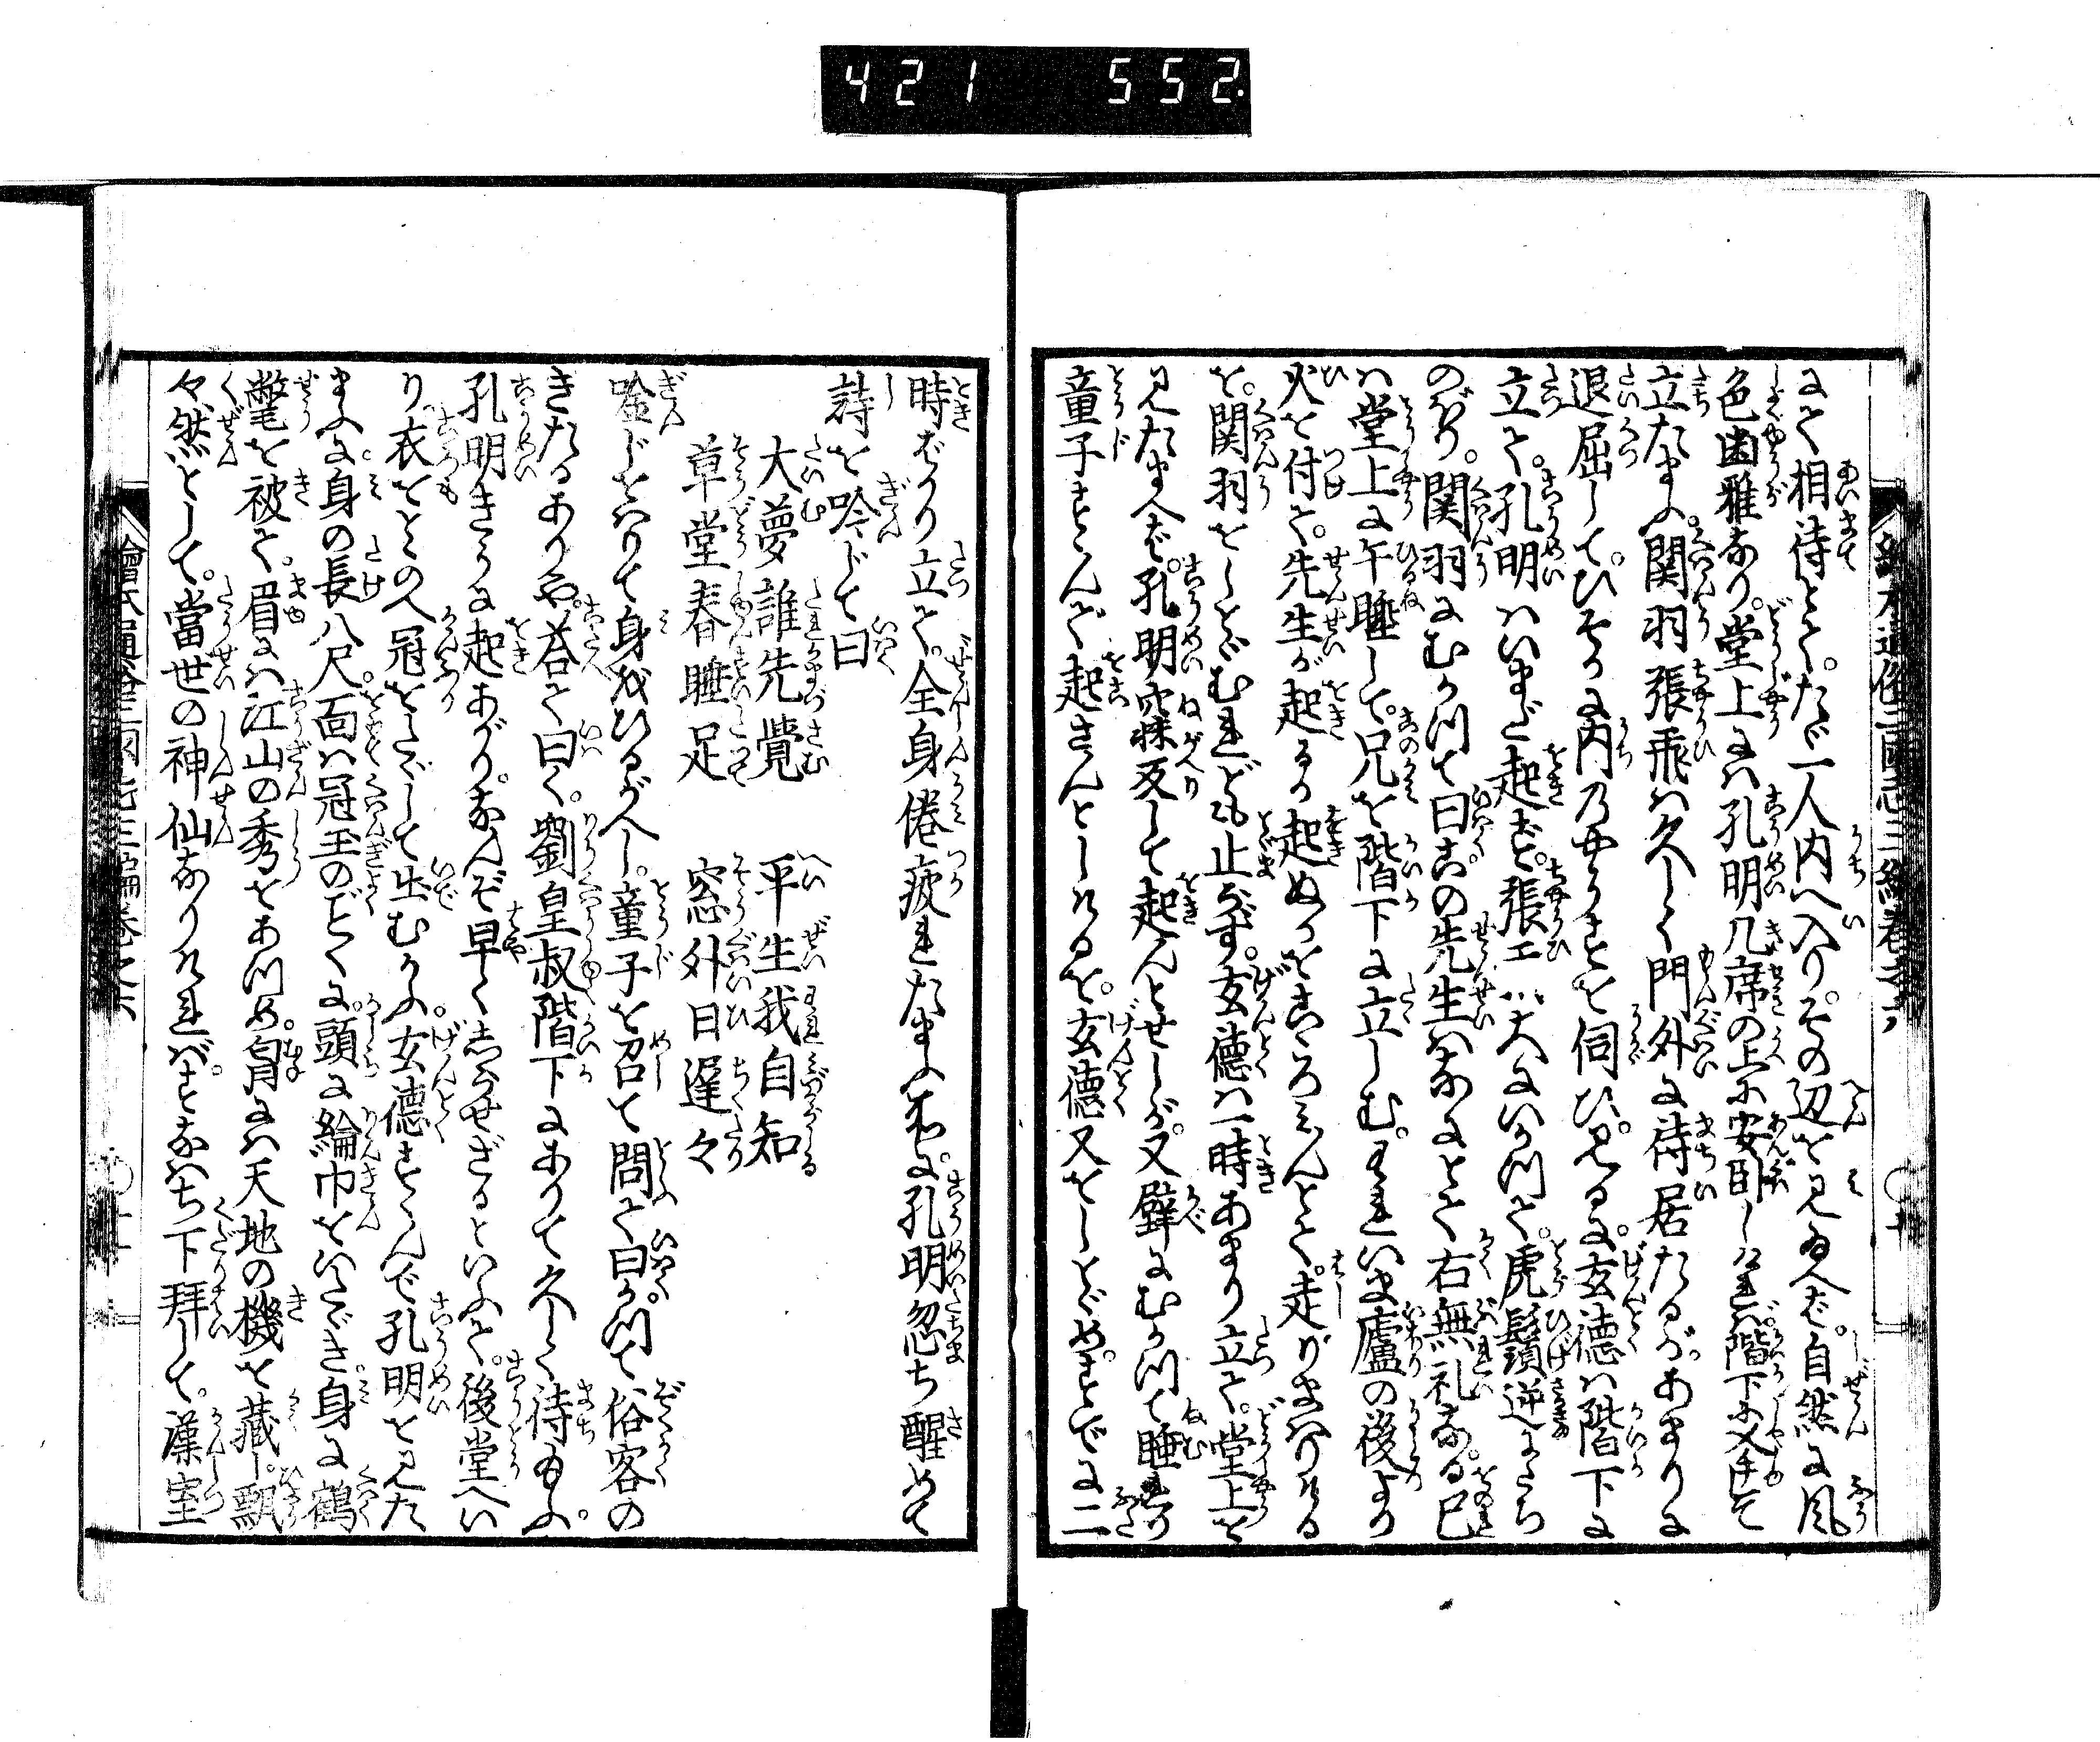 421 552.
にて相待とて。たゞ一人内へ入り。その辺を見給へば。自然に風
色幽雅なり。堂上には孔明几席の上に安臥しければ。階下に叉手して
立たまふ。関羽張飛は久しく門外に待居たるが。あまりに
退屈して。ひそかに内のやうすを伺ひ見るに。玄徳は階下に
立て。孔明はいまだ起ず。張飛大にいかつて。虎鬚逆にたち
のぼり。関羽にむかつて曰この先生はなにとて右無礼なる己
は堂上に午睡して。兄を階下に立しむ。われいま廬の後より
火を付て。先生が起るか起ぬかをこゝろみんとて。走りまはりける
を。関羽をしとゞむれども止まず。玄徳は一時あまり立て。堂上を
見たまへば。孔明寐反して起んとせしが。又壁にむかつて睡れり
童子すゝんで起さんとしけるを。玄徳又をしとゞめ。すでに二
時ばかり立て。全身倦疲れたまふ所に。孔明忽ち醒めて
詩を吟じて曰
大夢誰先覺　平生我自知
草堂春睡足　窓外日遲々
吟じをはりて身をひるがへし。童子を召て問て曰。かつて俗客の
きたるありや。答て曰く。劉皇叔階下にありて久しく待給ふ。
孔明きうに起あがり。なんぞ早くしらせざるといふて。後堂へい
り。衣をとゝのへ冠をたゞして出むかふ。玄徳すゝんで孔明を見た
まふに。身の長八尺。面は冠玉のごとくに。頭に綸巾をいたゞき。身に鶴
氅を被て。眉には江山の秀をあつめ。胸には天地の機を藏し。飄
々然として。當世の神仙なりければ。すなはち下拜して。漢室